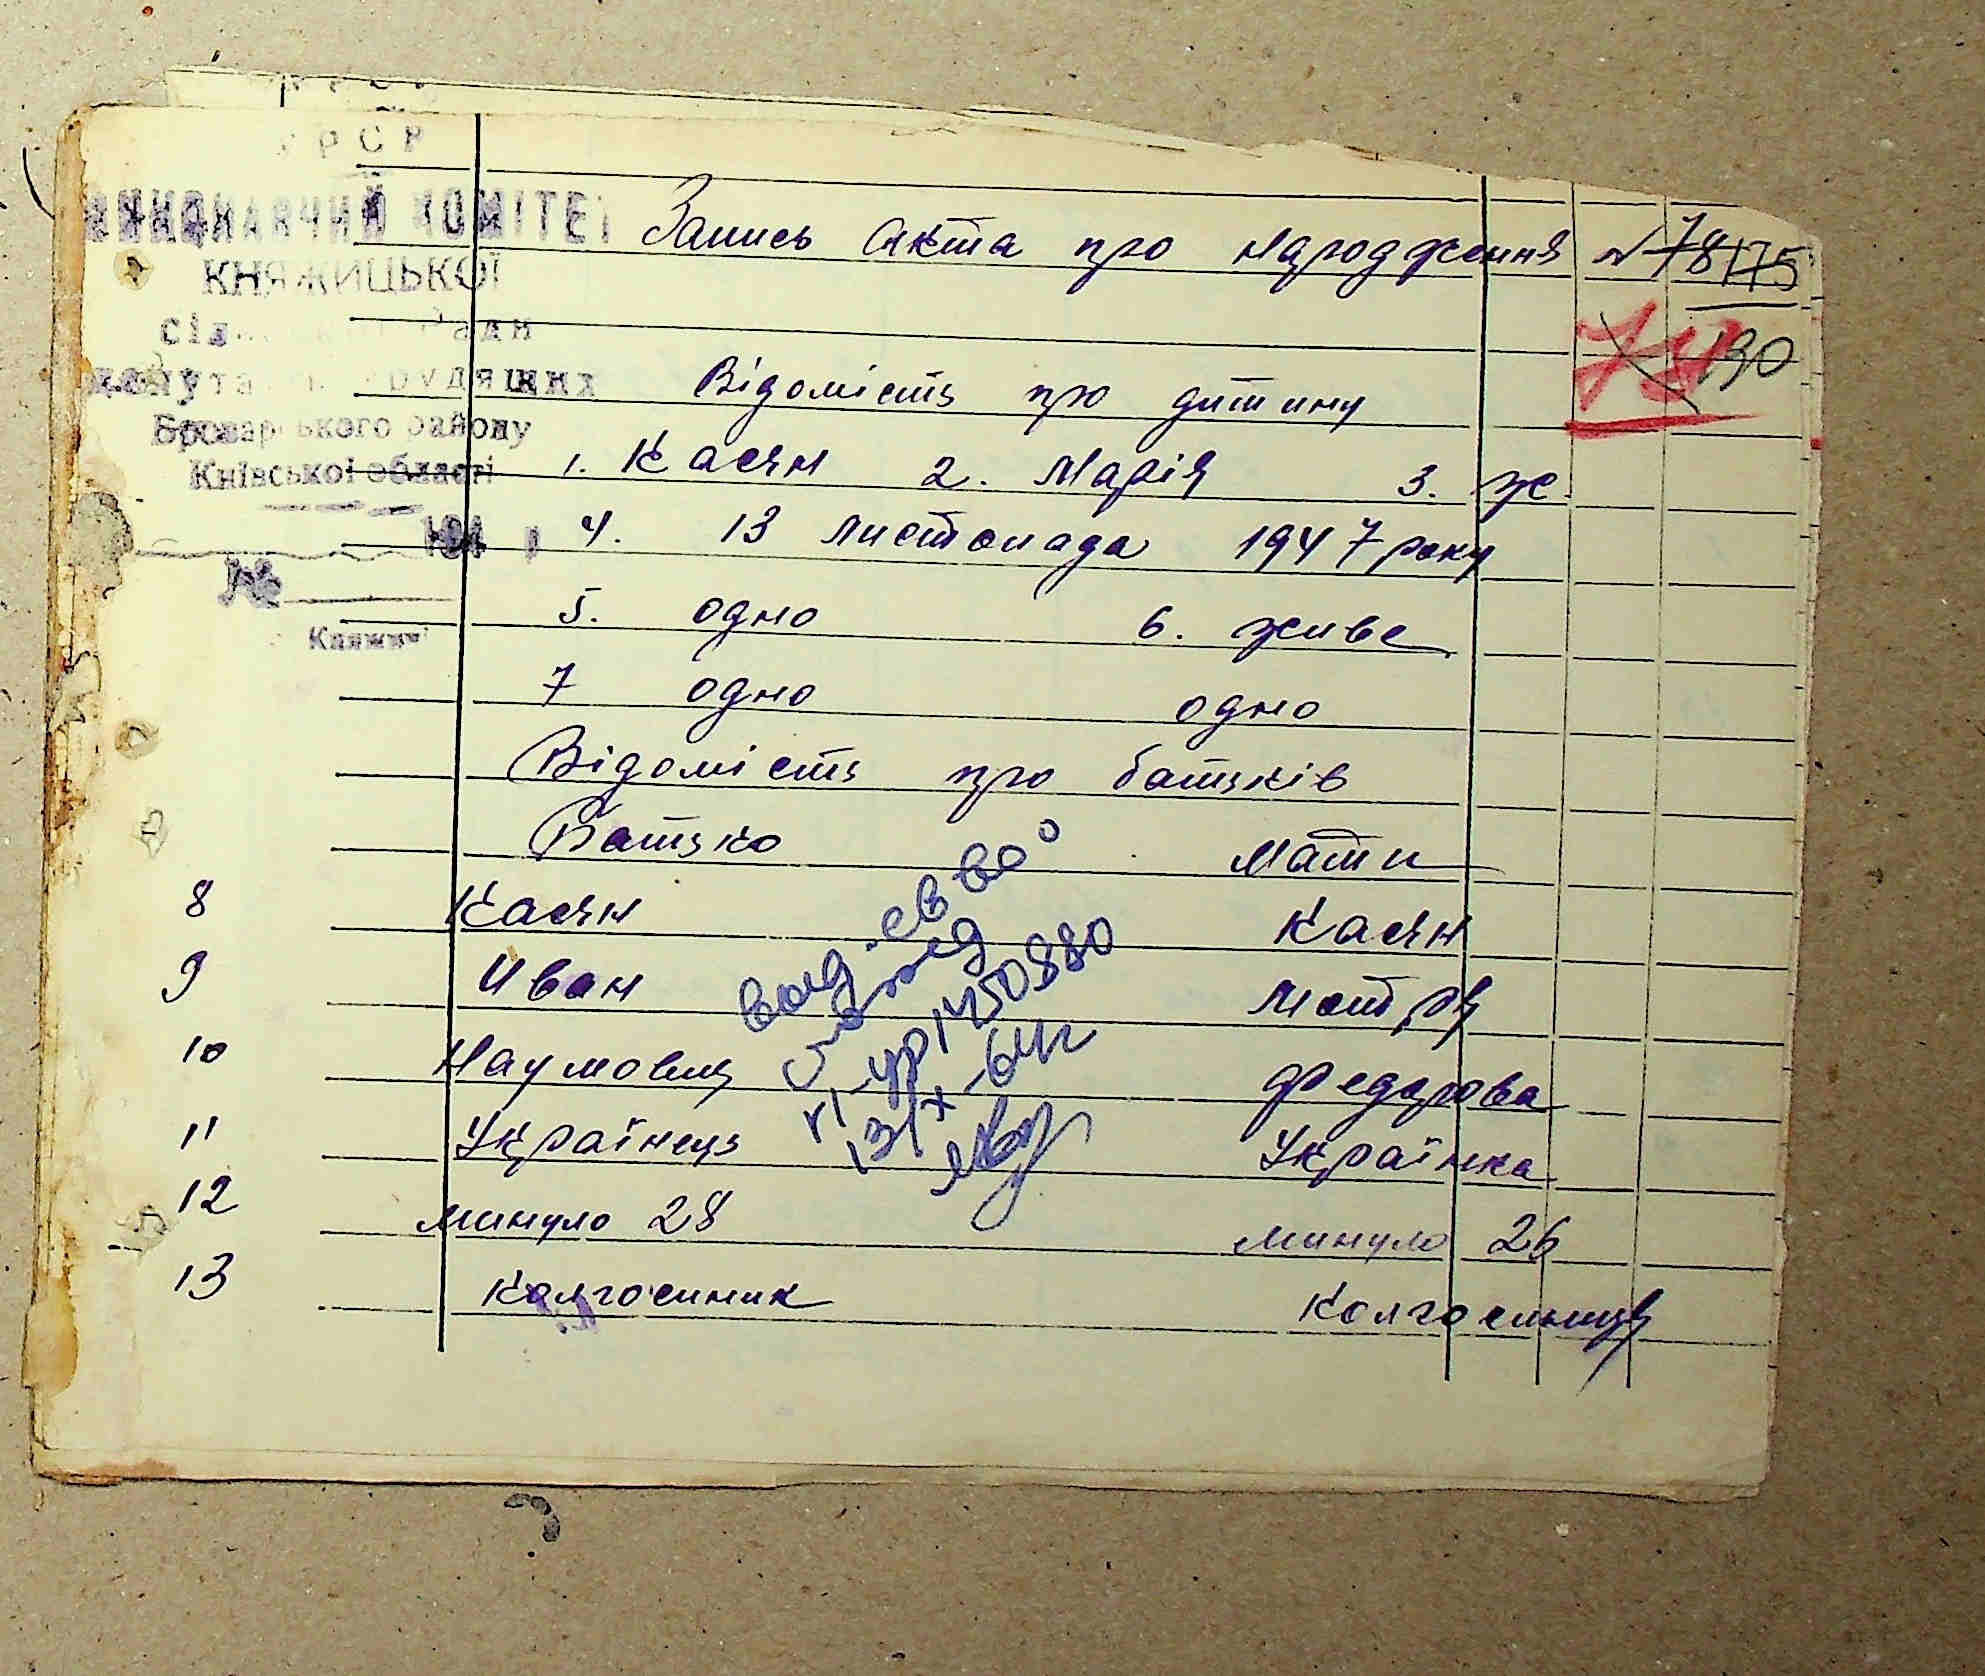 УРСР
ВИКОНАВЧИЙ КОМІТЕТ
КНЯЖИЦЬКОЇ
сільської Ради
депутатів трудящих
Броварського району
Київської області
194 р
№
Княжичі
Запись акта про народження № 78 175
74 130
Відомість про дитину
1. Касян 2. Марія 3. ж.
4. 13 листопада 1947 року
5. одно 6. живе
7 одно одно
Відомість про батьків
Батько Мати
8 Касян Касян
9 Иван Мотря
10 Наумович Федорова
11 Українець Українка
12 минуло 28 минуло 26
13 Колгоспник Колгоспниця
выд. св во
о рожд
УР 1450880
13/X-64г